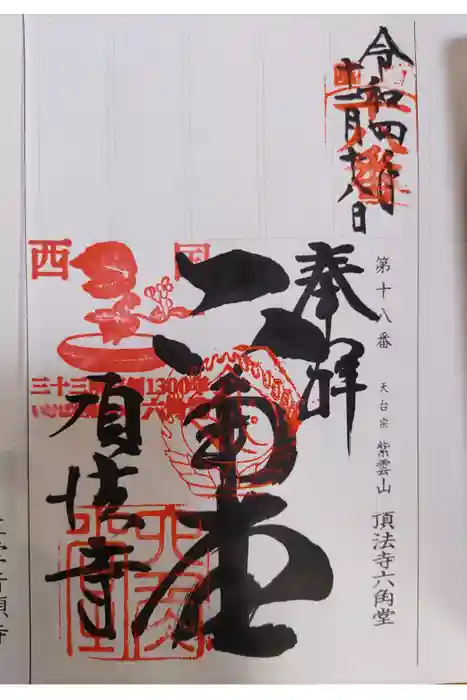 令和四年
奉拝
第十八番 天台宗 紫雲山 頂法寺六角堂
六角堂
頂法寺
西国
三十三所草創1300年